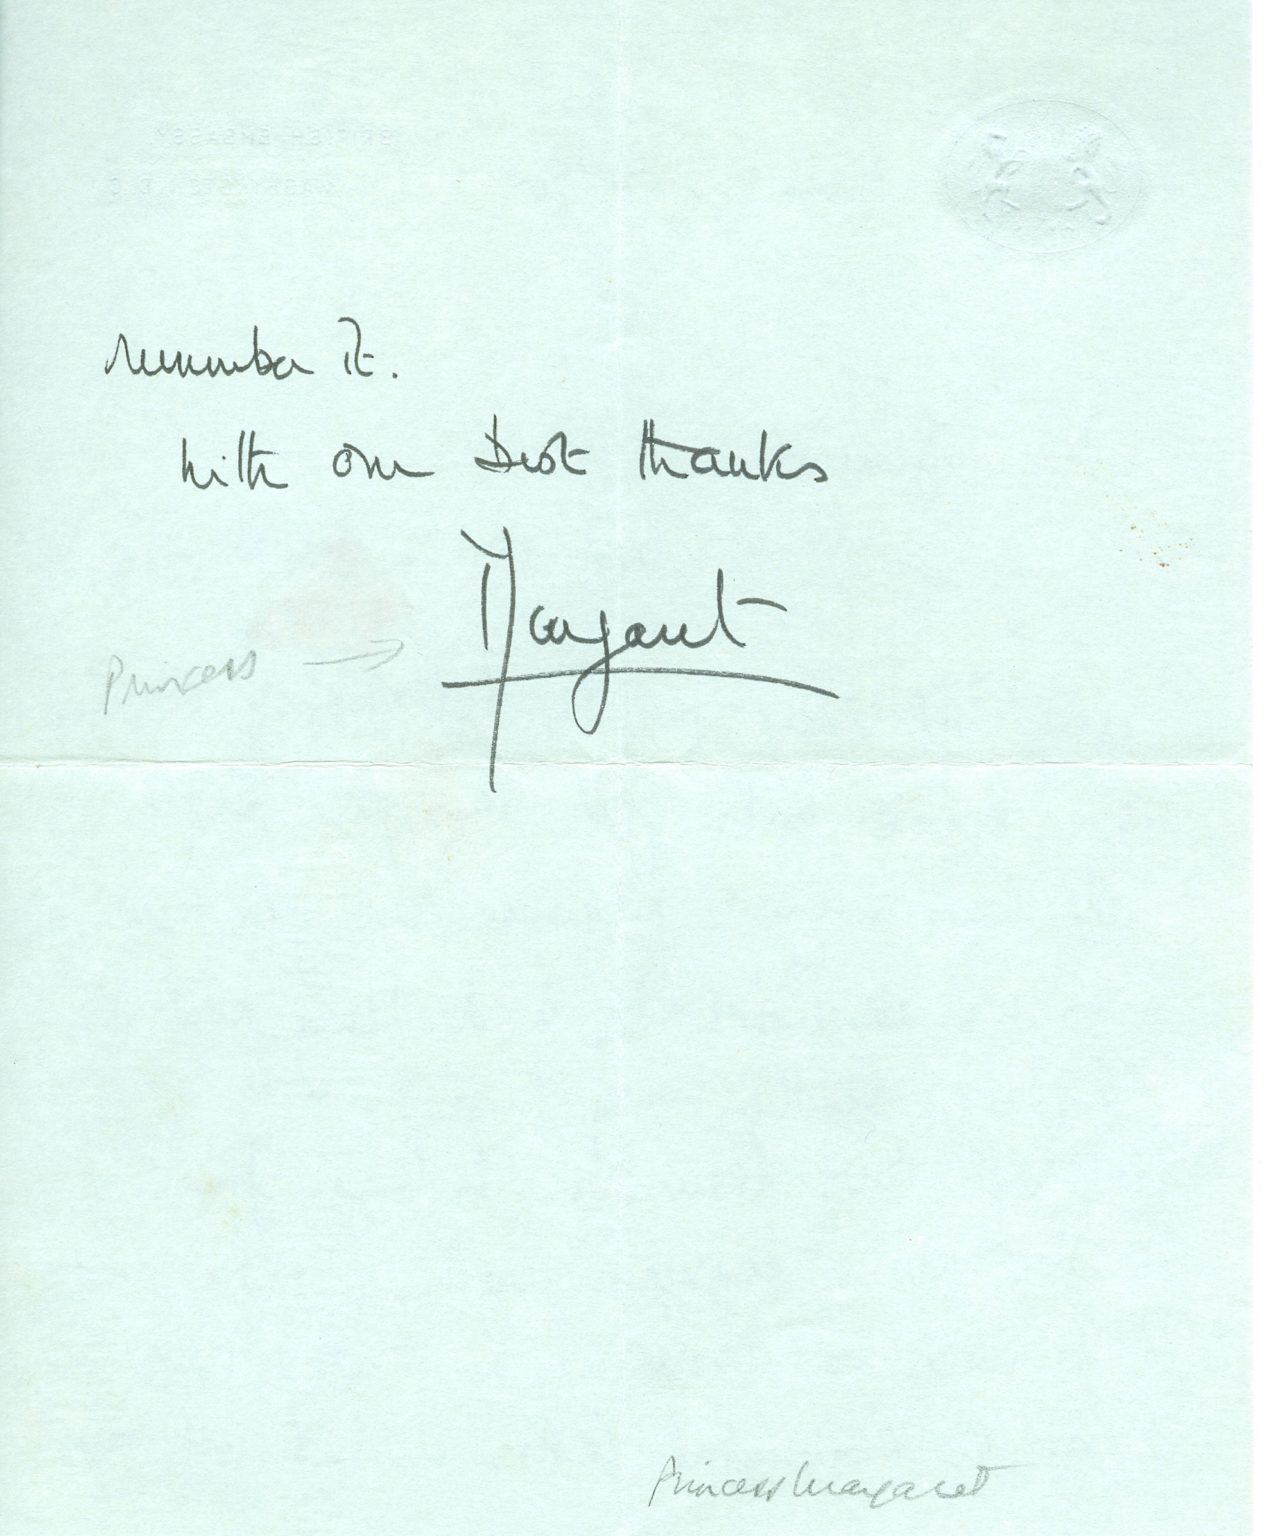 BRITISH EMBASSY
WASHINGTON D C
remember it.
With our best thanks
Margaret
Princess →
Princess Margaret